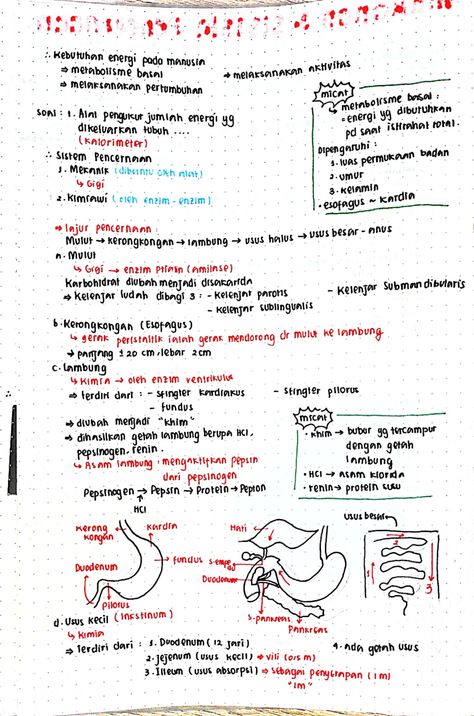 ∴ Kebutuhan energi pada manusia
⇒ metabolisme basal
⇒ melaksanakan aktivitas
⇒ melaksanakan pertumbuhan
micat
↳ metabolisme basal :
= energi yg dibutuhkan
pd saat istirahat total.
Dipengaruhi :
1. luas permukaan badan
2. umur
3. kelamin
• esofagus ~ kardia
Soal : 1. Alat pengukur jumlah energi yg
dikeluarkan tubuh ....
(kalorimeter)
∴ Sistem Pencernaan
1. Mekanik (dibantu oleh alat)
↳ Gigi
2. Kimiawi (oleh enzim - enzim)
⇒ lajur pencernaan :
Mulut → kerongkongan → lambung → usus halus → usus besar - anus
a. Mulut
↳ Gigi → enzim ptialin (amilase)
Karbohidrat diubah menjadi disakarida
⇒ Kelenjar ludah dibagi 3 : - Kelenjat parotis
- Kelenjar Submandibularis
- kelenjar sublingualis
b. Kerongkongan (Esofagus)
↳ gerak peristaltik ialah gerak mendorong dr mulut ke lambung
→ panjang ± 20 cm, lebar 2cm
c. Lambung
↳ Kimia → oleh enzim ventrikulus
⇒ terdiri dari : - sfingter kardiakus
- sfingter pilorus
- fundus
⇒ diubah menjadi "khim"
⇒ dihasilkan getah lambung berupa HCl,
pepsinogen, renin.
↳ Asam lambung : mengaktifkan pepsin
dari pepsinogen
Pepsinogen → Pepsin → Protein → Pepton
HCl
micat
• khim → bubur yg tercampur
dengan getah
lambung
• HCl → asam klorida
• renin → protein susu
kerong
kongan
kardia
Duodenum
fundus
Pilorus
Hati
Duodenum
s.pankreas
Pankreas
usus besar
1
2
3
d. Usus kecil (Inkstinum)
↳ Kimia
⇒ terdiri dari : 1. Duodenum (12 jari)
4. Ada getah usus
2. Jejenum (usus kecil) ⇒ vili (0,5 m)
3. Illeum (usus absorpsi) ⇒ sebagai penyerapan (1 m)
"1m"